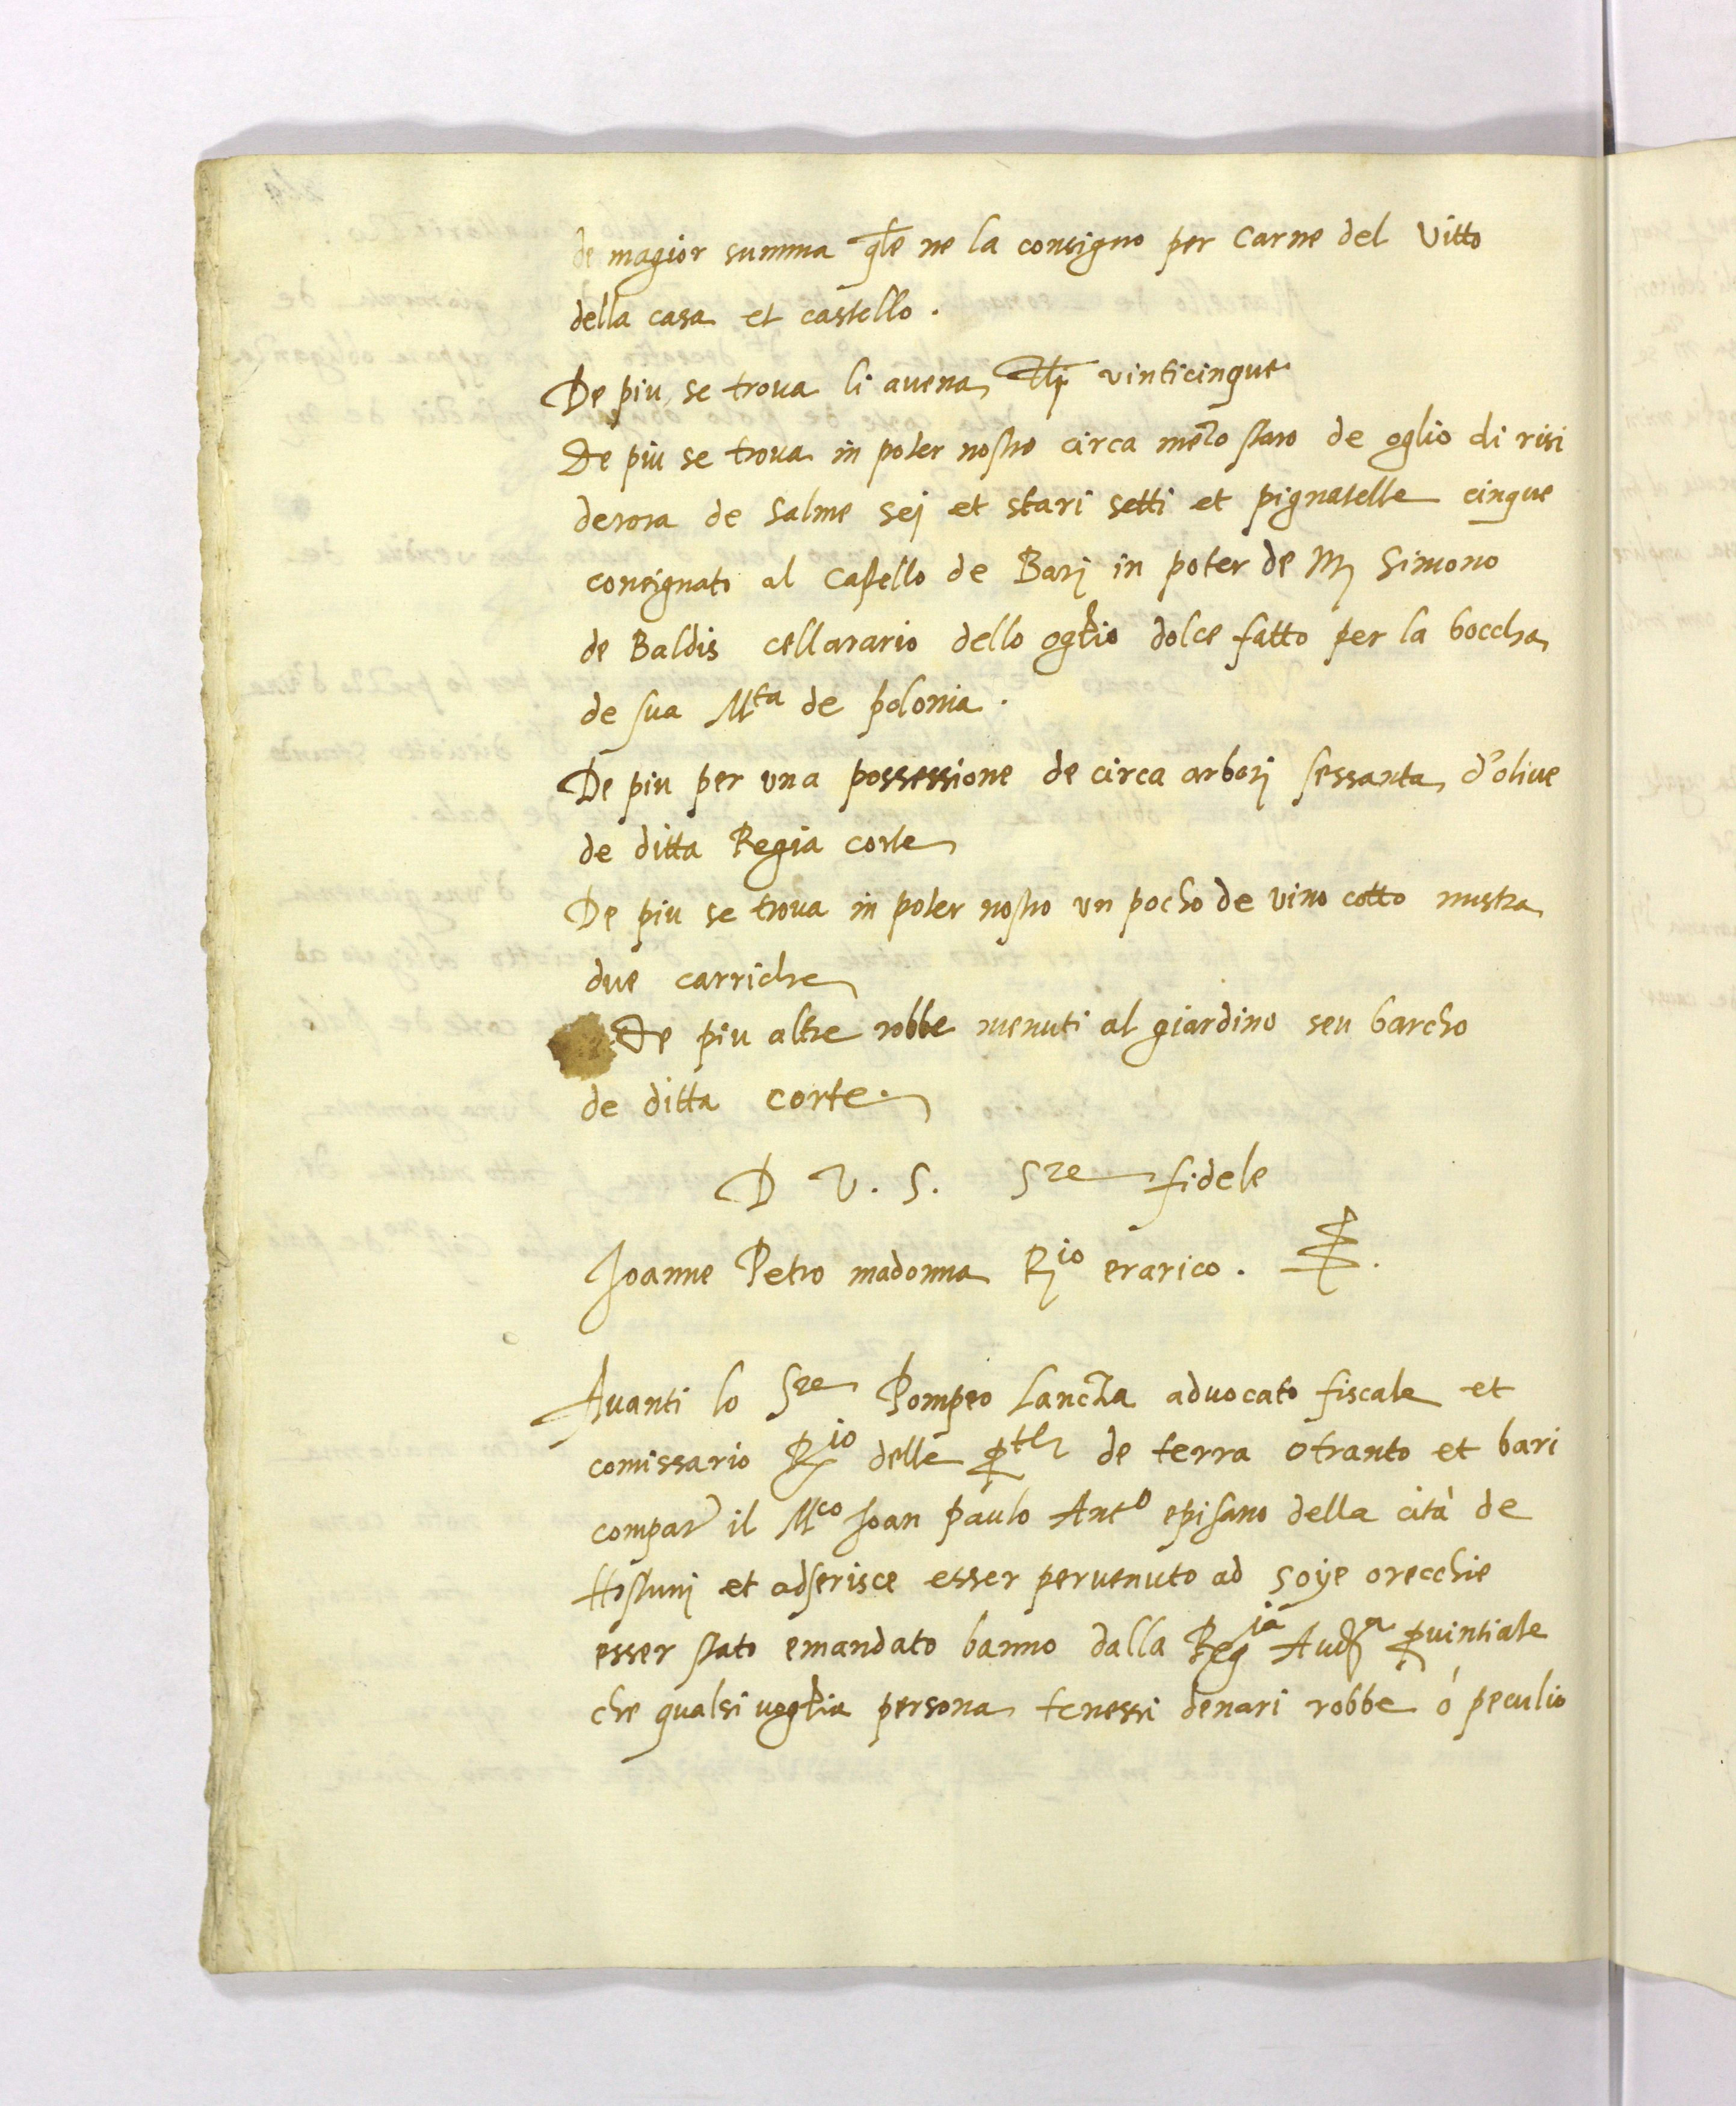 de magior summa qle ne la consigno per carne del vitto
della casa et castello.
De piu, se trova li avena, tti vinticinque
De piu se trova in poter nostro circa mezo staro de oglio di risi
derora de salme sej et stari setti et pignatelle cinque
consignato al castello de Barj in poter de M simono
de Baldis cellarario dello oglio dolce fatto per la boccha
de sua Mta de polonia.
De piu per una possessione de circa arborj sessanta d'olive
de ditta Regia corte
De piu se trova in poter nostro un pocho de vino cotto mustra
due carriche
De piu altre robbe menuti al giardino seu barcho
de ditta corte.
D V. S. Sre fidele
Joanne Petro madonna Rio erarico.
Avanti lo Sre Pompeo Lancza advocato fiscale et
comissario Rio delle de terra otranto et bari
compar il Mco Joan paulo Anto episano della cità de
Hostunj et adserisce esser pervenuto ad soye orecchie
esser stato emandato banno dalla Regia Auda provintiale
che qualsi voglia persona tenessi denari robbe ó peculio